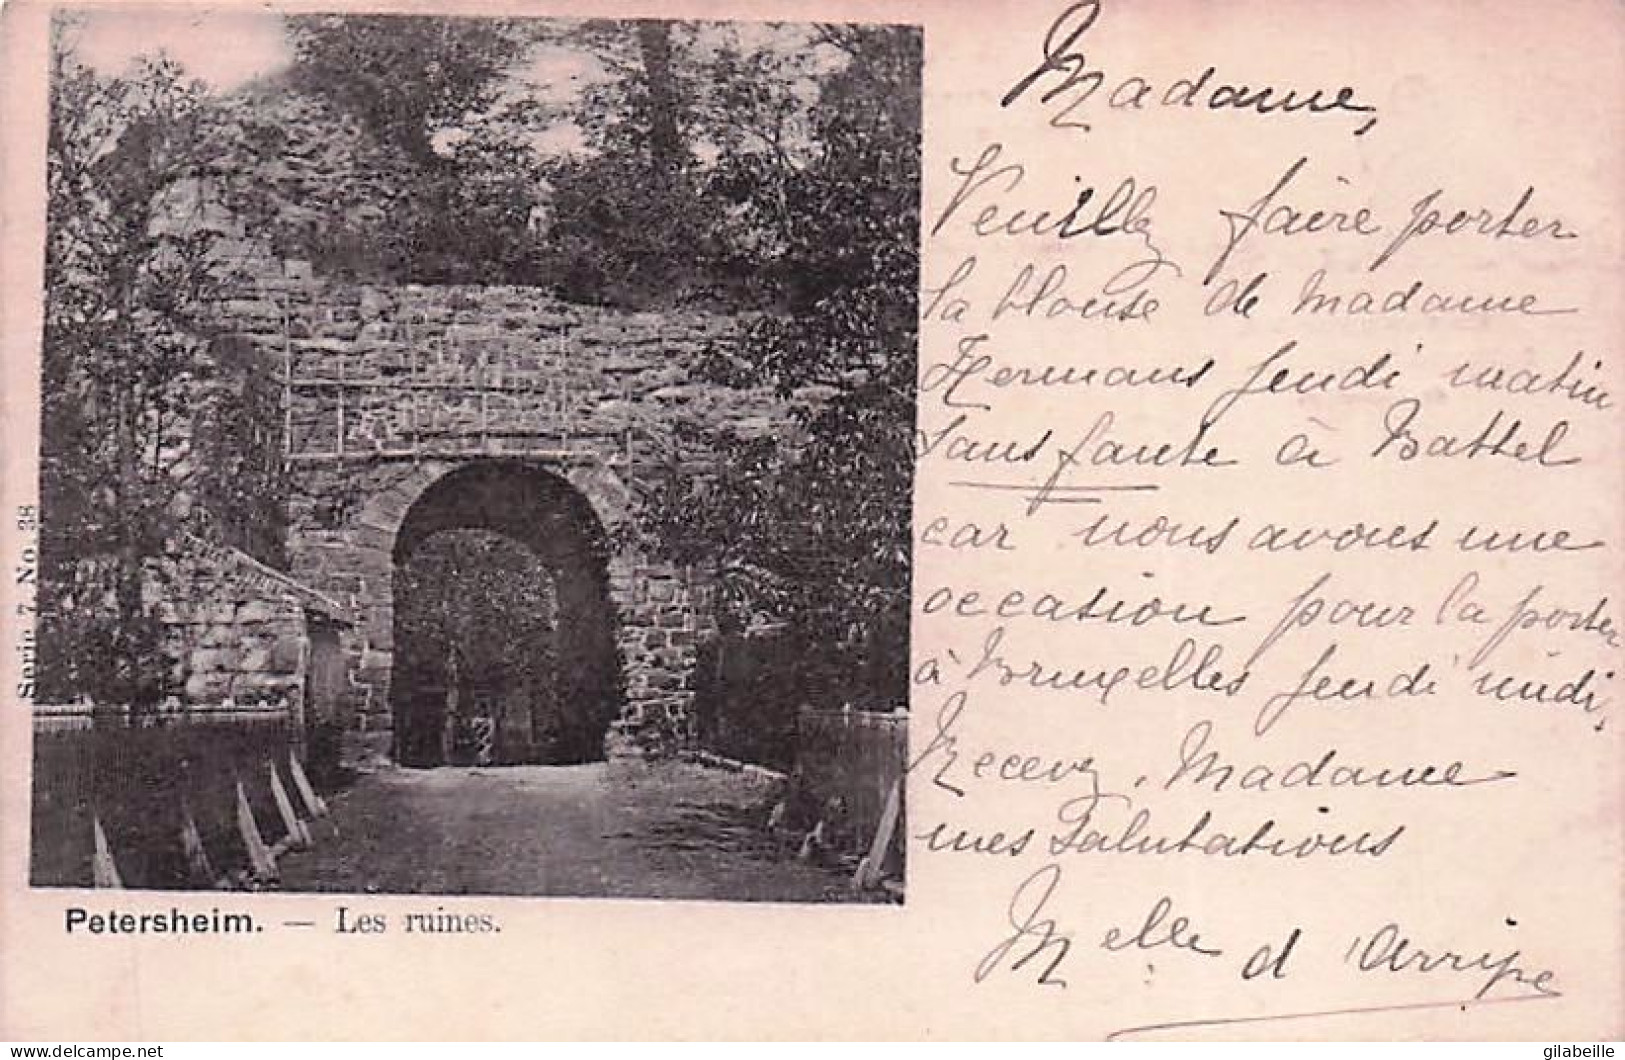 Madame,
Veuillez faire porter
la blouse de Madame
Hermans jeudi matin
sans faute à Battel
car nous avons une
occasion pour la porter
à Bruxelles jeudi midi,
Recevez, Madame
mes Salutations
Melle d'Arripe
Serie 7 No. 38
Petersheim. — Les ruines.
www.delcampe.net
gilabeille